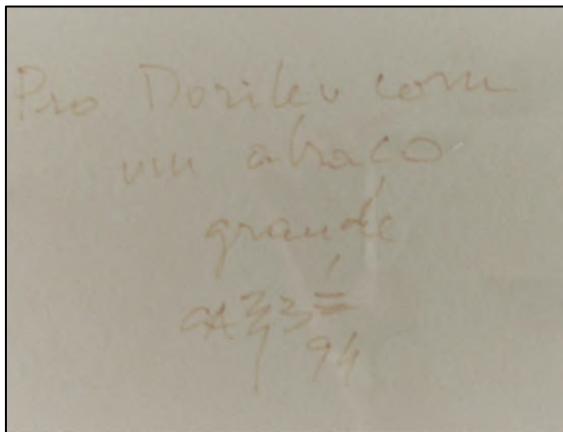 Pro Dorileu com
um abraço
grande
94